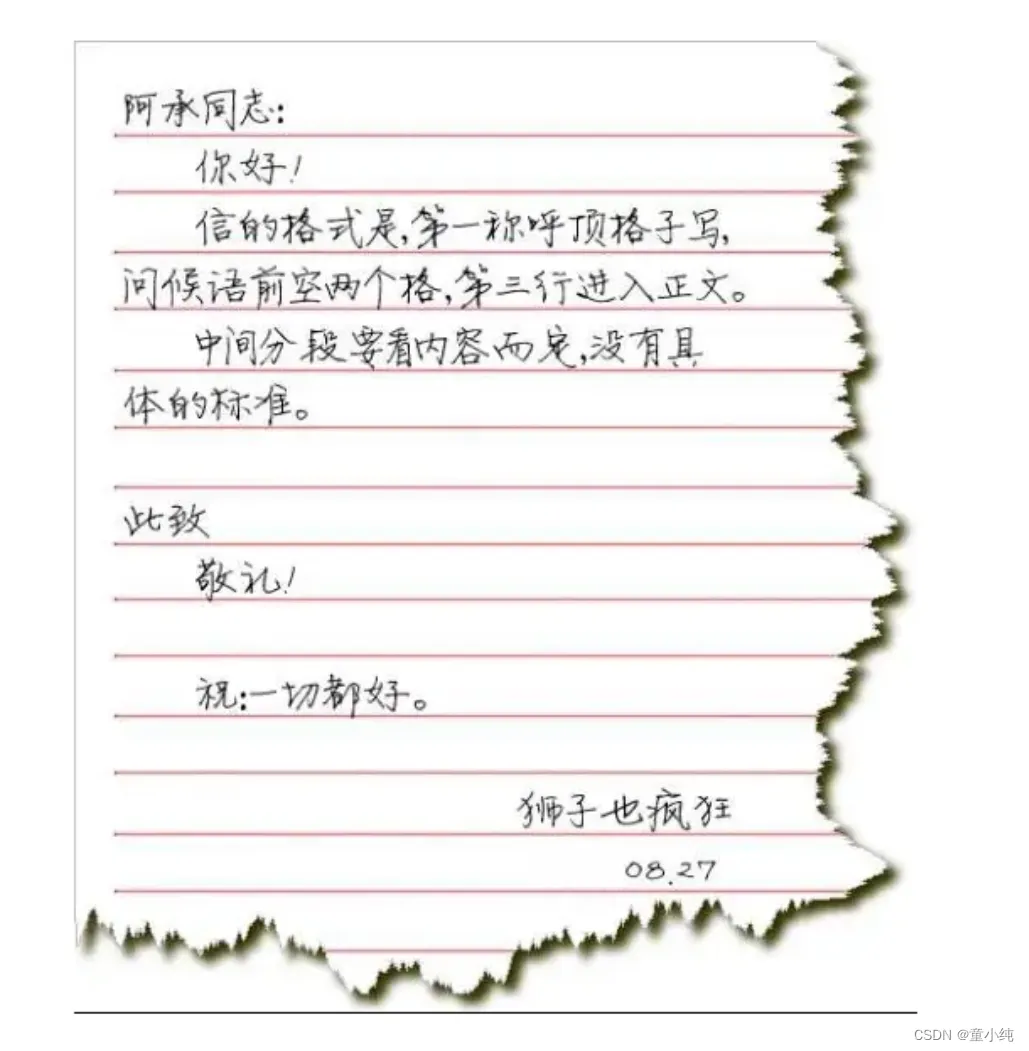 阿承同志:
你好!
信的格式是,第一称呼顶格子写,
问候语前空两个格,第三行进入正文。
中间分段要看内容而定,没有具
体的标准。
此致
敬礼!
祝:一切都好。
狮子也疯狂
08.27
CSDN @童小纯